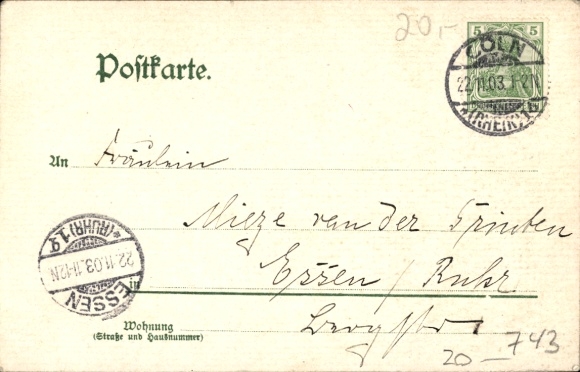 20,-
5 5
CÖLN
22.11.03. 1-2N
*(RHEIN) 1
Postkarte.
An Fräulein
Mieze van der Grinten
Essen / Ruhr
in
Bergstr. 7
Wohnung
(Straße und Hausnummer)
ESSEN
22.11.03. 11-12N
*(RUHR) 1.
20 - 743